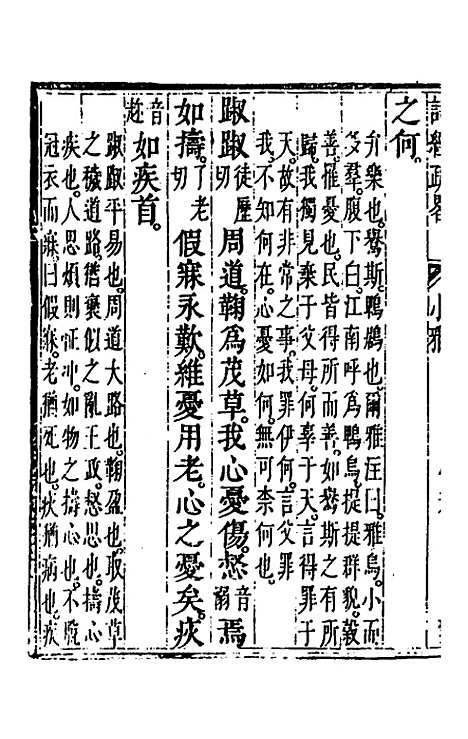 詩經疏畧 小雅
之何。
弁樂也。鸒斯。鴨鵖也。爾雅注曰。雅烏。小而
多羣。腹下白。江南呼爲鴨烏。提提群貌。穀
善。罹憂也。民皆得所而善。如鸒斯之有所
歸。我獨見棄于父母。何辜于天。言得罪于
天。故有非常之事。我罪伊何。言父罪
我。不知何在。心憂如何。無可柰何也。
踧踧徒歷切周道。鞫爲茂草。我心憂傷。惄音溺焉
如擣。了老切假寐永歎。維憂用老。心之憂矣。疢
音趂如疾首。
踧踧平易也。周道大路也。鞫盈也。取茂草
之穢道路。喻褒姒之亂王政。惄思也。擣心
疾也。人思煩則怔冲。如物之擣心也。不脫
冠衣而寐曰假寐。老猶死也。疢猶病也。疾